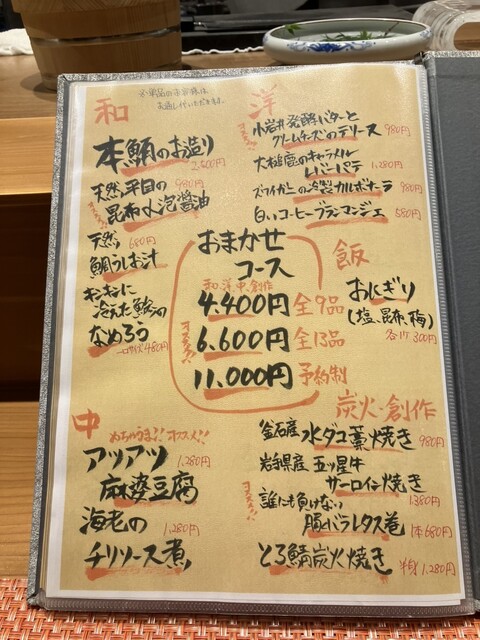 和
本鮪のお造り
2,500円
天然平目の
980円
昆布水泡醤油
天然
680円
鯛うしお汁
キンキンに
冷えた鯵の
なめろう
480円
洋
小岩井発酵バターと
クリームチーズのテリーヌ
980円
大槌鹿のキャラメル
レバーパテ
1,280円
ズワイガニの冷製カルボナーラ
980円
白いコーヒーブランマンジェ
580円
おまかせ
コース
和、洋、中、創作
4,400円 全9品
オススメ!!
6,600円 全13品
11,000円 予約制
飯
おにぎり
(塩、昆布、梅)
各1ヶ 300円
中
めちゃうま!! オススメ!!
アツアツ
1,280円
麻婆豆腐
海老の
1,280円
チリソース煮
炭火・創作
釜石産 水ダコ藁焼き
980円
岩手県産 五ツ星牛
サーロイン焼き
1380円
オススメ!!
誰にも負けない
豚バラレタス巻
1本680円
とろ鯖炭火焼き
半身1,280円